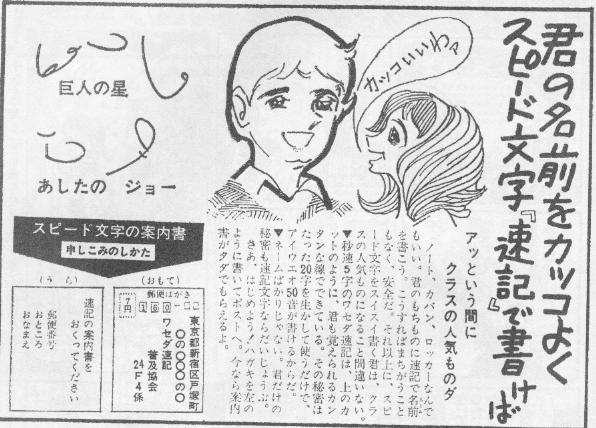 君の名前をカッコよく
スピード文字『速記』で書けば
カッコいいわァ
アッという間に
クラスの人気ものダ
ノート、カバン、ロッカーなんで
もいい。君のもちものに速記で名前
を書こう。こうすればまちがうこと
もなく、安全だ。それ以上に、スピ
ード文字をスイスイ書く君は、クラ
スの人気ものになること間違いない。
▼秒速5字のワセダ速記は、上のカ
ットのように、君も覚えられるカン
タンな線でできている。その秘密は
たった20字を生かして使うだけで、
アイウエオ50音が書けるからだ。
▼ネームばかりじゃない。君だけの
秘密も速記文字ならだいじょうぶ。
さあ、はじめよう！ハガキを左の
ように書いてポストへ。今なら案内
書がタダでもらえるよ。
巨人の星
あしたの ジョー
スピード文字の案内書
申しこみのしかた
(おもて)
郵便はがき
7円
160-□□
東京都新宿区戸塚町
ワセダ速記
普及協会
24F4係
(うら)
速記の案内書を
おくってください
郵便番号
おところ
おなまえ